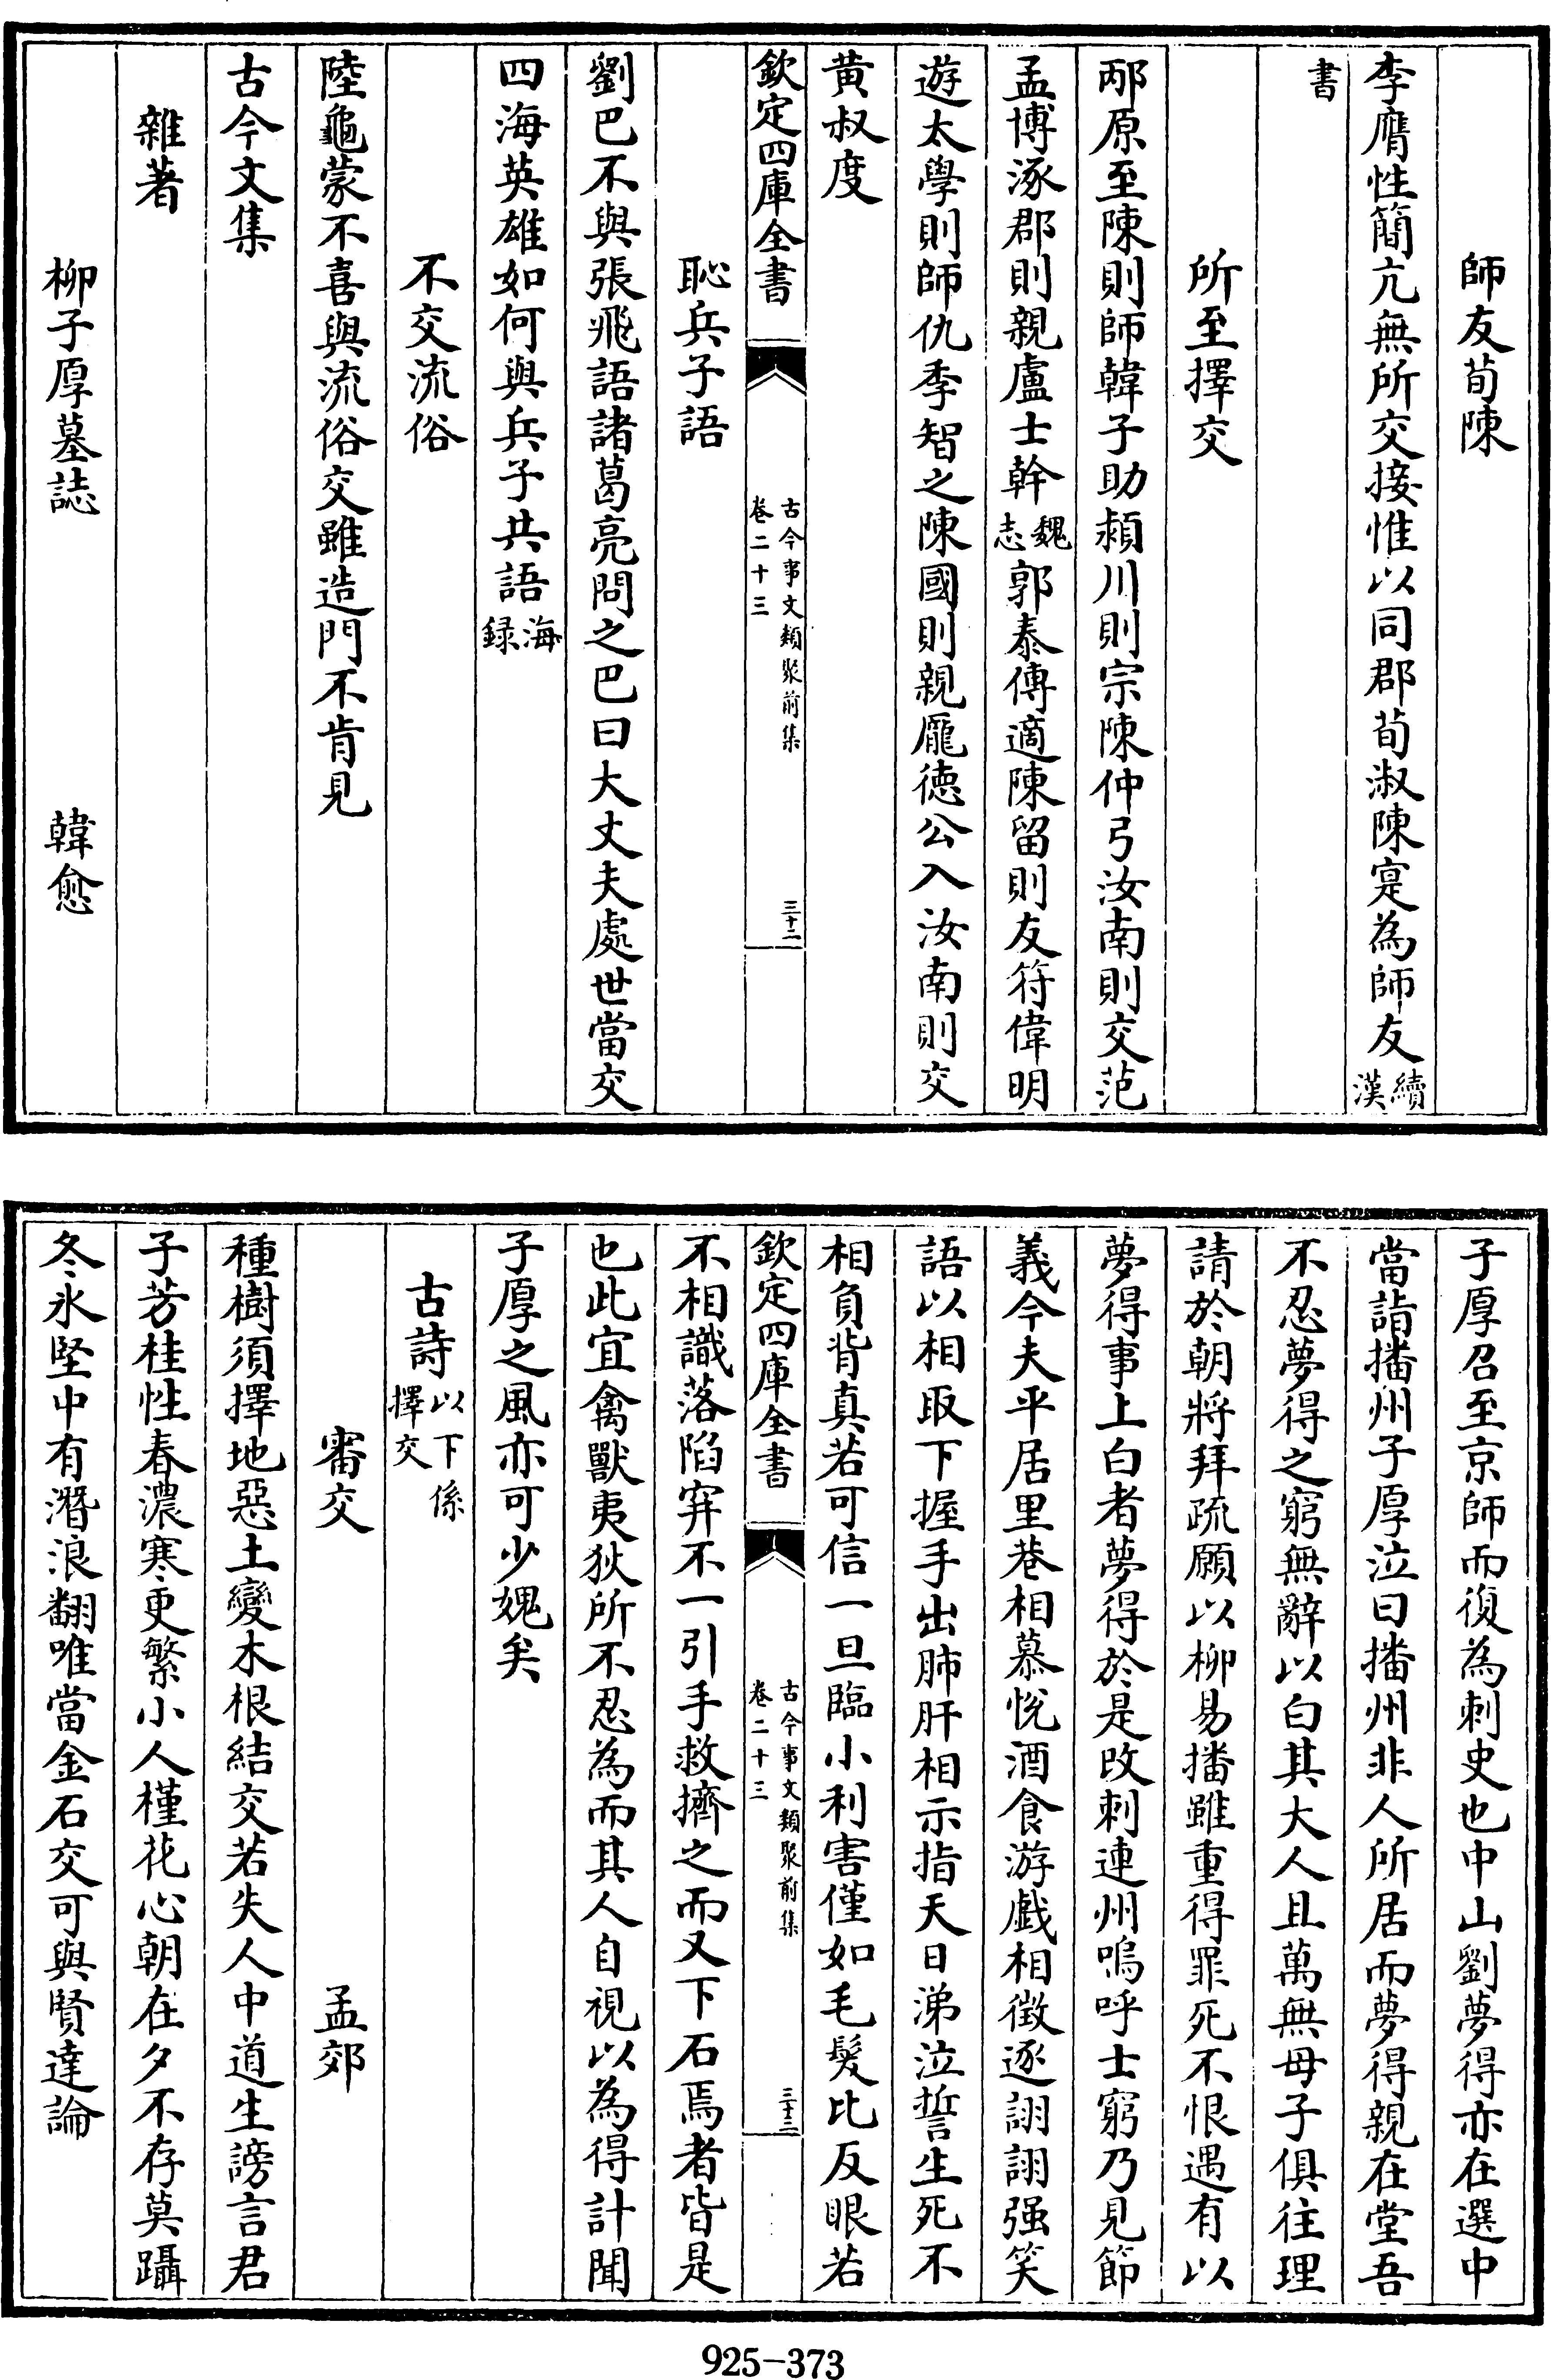 師友荀陳
李膺性簡亢無所交接惟以同郡荀淑陳寔為師友續漢
書
所至擇交
邴原至陳則師韓子助潁川則宗陳仲弓汝南則交范
孟博涿郡則親盧士幹魏志郭泰傳適陳留則友符偉明
遊太學則師仇季智之陳國則親龎徳公入汝南則交
黄叔度
欽定四庫全書
古今事文類聚前集
卷二十三
三十二
恥兵子語
劉巴不與張飛語諸葛亮問之巴曰大丈夫處世當交
四海英雄如何與兵子共語海録
不交流俗
陸龜蒙不喜與流俗交雖造門不肯見
古今文集
雜著
柳子厚墓誌 韓愈
子厚召至京師而復為刺史也中山劉夢得亦在選中
當詣播州子厚泣曰播州非人所居而夢得親在堂吾
不忍夢得之窮無辭以白其大人且萬無母子俱往理
請於朝將拜疏願以柳易播雖重得罪死不恨遇有以
夢得事上白者夢得於是改刺連州嗚呼士窮乃見節
義今夫平居里巷相慕悅酒食游戲相徵逐詡詡强笑
語以相取下握手出肺肝相示指天日涕泣誓生死不
相負背真若可信一旦臨小利害僅如毛髮比反眼若
欽定四庫全書
古今事文類聚前集
卷二十三
三十三
不相識落陷穽不一引手救擠之而又下石焉者皆是
也此宜禽獸夷狄所不忍為而其人自視以為得計聞
子厚之風亦可少媿矣
古詩以下係擇交
審交 孟郊
種樹須擇地惡土變木根結交若失人中道生謗言君
子芳桂性春濃寒更繁小人槿花心朝在夕不存莫躡
冬氷堅中有潛浪翻唯當金石交可與賢達論
925-373